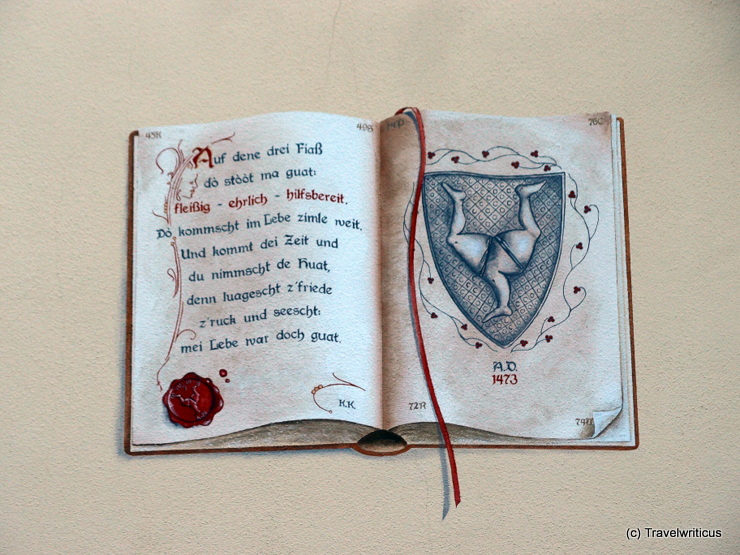 45R
49B
Auf dene drei Fiaß
dô stôôt ma guat:
fleißig - ehrlich - hilfsbereit.
Dô kommscht im Lebe zimle weit.
Und kommt dei Zeit und
du nimmscht de Huat,
denn luagescht z'friede
z'ruck und seescht:
mei Lebe war doch guat.
K.K.
A.D.
1473
72R
(c) Travelwriticus